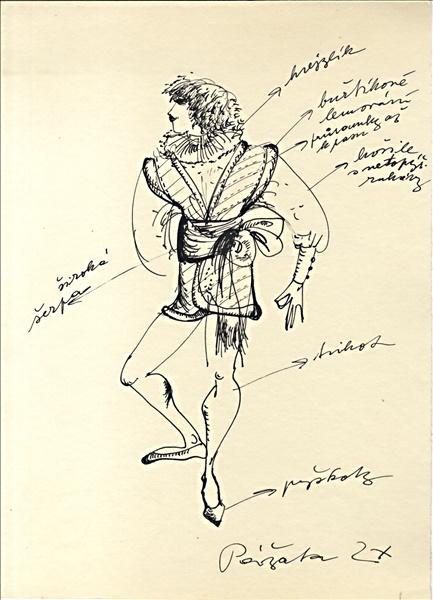 krejzlík
buřtíkové
lemování
průramky až
k pasu
košile
s netopýř.
rukávy
široká
šerpa
trikot
piškoty
Pážata 2x